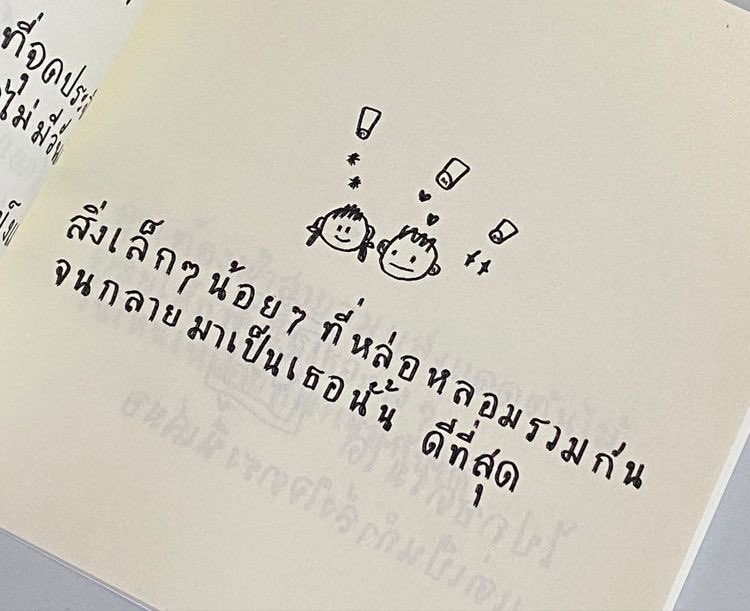 ที่จุดประ
ไม่มีวัน
สิ่งเล็กๆ น้อยๆ ที่หล่อหลอมรวมกัน
จนกลายมาเป็นเธอนั้น ดีที่สุด